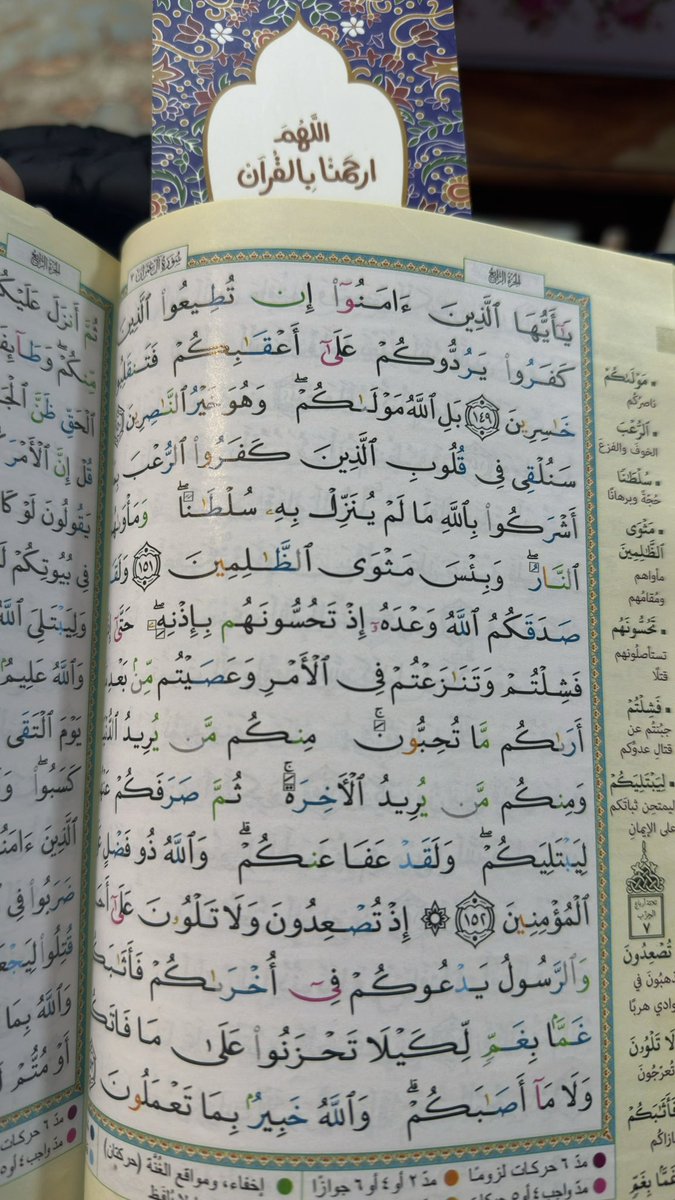 اللَّهُمَّ
ارحمنا بالقرآن
سُورَةُ آلِ عِمۡرَانَ ٣
الجزء الرابع
يَٰٓأَيُّهَا ٱلَّذِينَ ءَامَنُوٓاْ إِن تُطِيعُواْ ٱلَّذِينَ
كَفَرُواْ يَرُدُّوكُمۡ عَلَىٰٓ أَعۡقَٰبِكُمۡ فَتَنقَلِبُواْ
خَٰسِرِينَ ١٤٩ بَلِ ٱللَّهُ مَوۡلَىٰكُمۡۖ وَهُوَ خَيۡرُ ٱلنَّٰصِرِينَ
سَنُلۡقِي فِي قُلُوبِ ٱلَّذِينَ كَفَرُواْ ٱلرُّعۡبَ بِمَآ
أَشۡرَكُواْ بِٱللَّهِ مَا لَمۡ يُنَزِّلۡ بِهِۦ سُلۡطَٰنٗاۖ وَمَأۡوَىٰهُمُ
ٱلنَّارُۖ وَبِئۡسَ مَثۡوَى ٱلظَّٰلِمِينَ ١٥١ وَلَقَدۡ
صَدَقَكُمُ ٱللَّهُ وَعۡدَهُۥٓ إِذۡ تَحُسُّونَهُم بِإِذۡنِهِۦۖ حَتَّىٰٓ إِذَا
فَشِلۡتُمۡ وَتَنَٰزَعۡتُمۡ فِي ٱلۡأَمۡرِ وَعَصَيۡتُم مِّنۢ بَعۡدِ
أَرَىٰكُم مَّا تُحِبُّونَۚ مِنكُم مَّن يُرِيدُ ٱلدُّنۡيَا
وَمِنكُم مَّن يُرِيدُ ٱلۡأٓخِرَةَۚ ثُمَّ صَرَفَكُمۡ عَنۡهُمۡ
لِيَبۡتَلِيَكُمۡۖ وَلَقَدۡ عَفَا عَنكُمۡۗ وَٱللَّهُ ذُو فَضۡلٍ عَلَى
ٱلۡمُؤۡمِنِينَ ١٥٢ ۞ إِذۡ تُصۡعِدُونَ وَلَا تَلۡوُۥنَ عَلَىٰٓ أَحَدٖ
وَٱلرَّسُولُ يَدۡعُوكُمۡ فِيٓ أُخۡرَىٰكُمۡ فَأَثَٰبَكُمۡ
غَمَّۢا بِغَمّٖ لِّكَيۡلَا تَحۡزَنُواْ عَلَىٰ مَا فَاتَكُمۡ
وَلَا مَآ أَصَٰبَكُمۡۗ وَٱللَّهُ خَبِيرُۢ بِمَا تَعۡمَلُونَ
مَوۡلَىٰكُمۡ
ناصركم
ٱلرُّعۡبَ
الخوف والفزع
سُلۡطَٰنٗا
حُجّةً وبرهانًا
مَثۡوَى
ٱلظَّٰلِمِينَ
مأواهم
ومُقامُهم
تَحُسُّونَهُم
تستأصلونهم
قتلًا
فَشِلۡتُمۡ
جبُنتُم عن
قتالِ عدوِّكم
لِيَبۡتَلِيَكُمۡ
ليمتحِن ثباتَكم
على الإيمان
ثلاثة أرباع
الحزب
٧
تُصۡعِدُونَ
تذهبُونَ في
الوادي هربًا
لَا تَلۡوُۥنَ
تُعرّجُونَ
فَأَثَٰبَكُمۡ
جازاكُم
غَمَّۢا بِغَمّٖ
ثُمَّ أَنزَلَ عَلَيۡكُم
مِّنكُمۡۖ وَطَآئِفَةٞ
ٱلۡحَقِّ ظَنَّ ٱلۡجَٰهِلِيَّةِ
قُلۡ إِنَّ ٱلۡأَمۡرَ
يَقُولُونَ لَوۡ كَانَ
فِي بُيُوتِكُمۡ
وَلِيَبۡتَلِيَ ٱللَّهُ
وَٱللَّهُ عَلِيمُۢ
يَوۡمَ ٱلۡتَقَى
كَسَبُواْۖ
ٱلَّذِينَ ءَامَنُواْ
ضَرَبُواْ فِي
قُتِلُواْ لِيَجۡعَلَ
وَٱللَّهُ بِمَا
أَوۡ مُتُّمۡ
مدّ ٦ حركات لزومًا
مدّ ٢ أو ٤ أو ٦ جوازًا
إخفاء، ومواقع الغُنَّة (حركتان)
مدّ واجب ٤ أو ٥
مدّ ٦ حركات